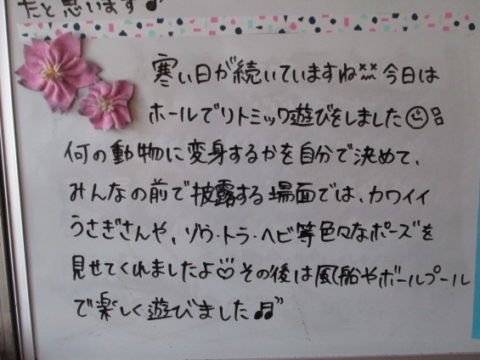 たと思います♪
寒い日が続いていますね××今日は
ホールでリトミック遊びをしました☺
何の動物に変身するかを自分で決めて、
みんなの前で披露する場面では、カワイイ
うさぎさんや、ゾウ・トラ・ヘビ等色々なポーズを
見せてくれましたよ♡その後は風船やボールプール
で楽しく遊びました♫